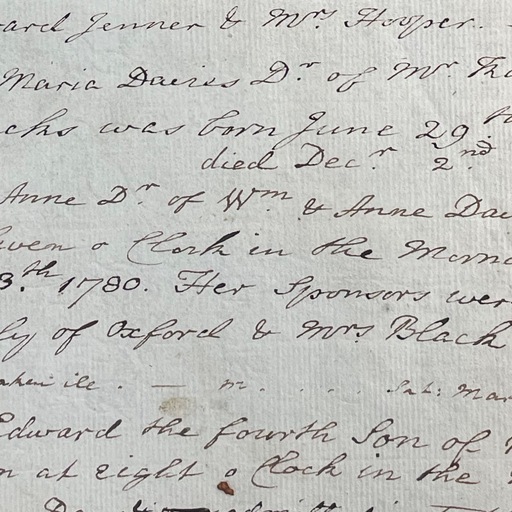 ard Jenner & Mrs Hooper.
Maria Davies Dr of Mr Tho
cks was born June 29.th
died Decr 2nd
Anne Dr of Wm & Anne Davi
leven o Clock in the Morn
3.th 1780. Her Sponsors wer
ly of Oxford & Mrs Black
taken ill . — m . . . . Sat: Mar
Edward the fourth Son of
n at eight o Clock in the